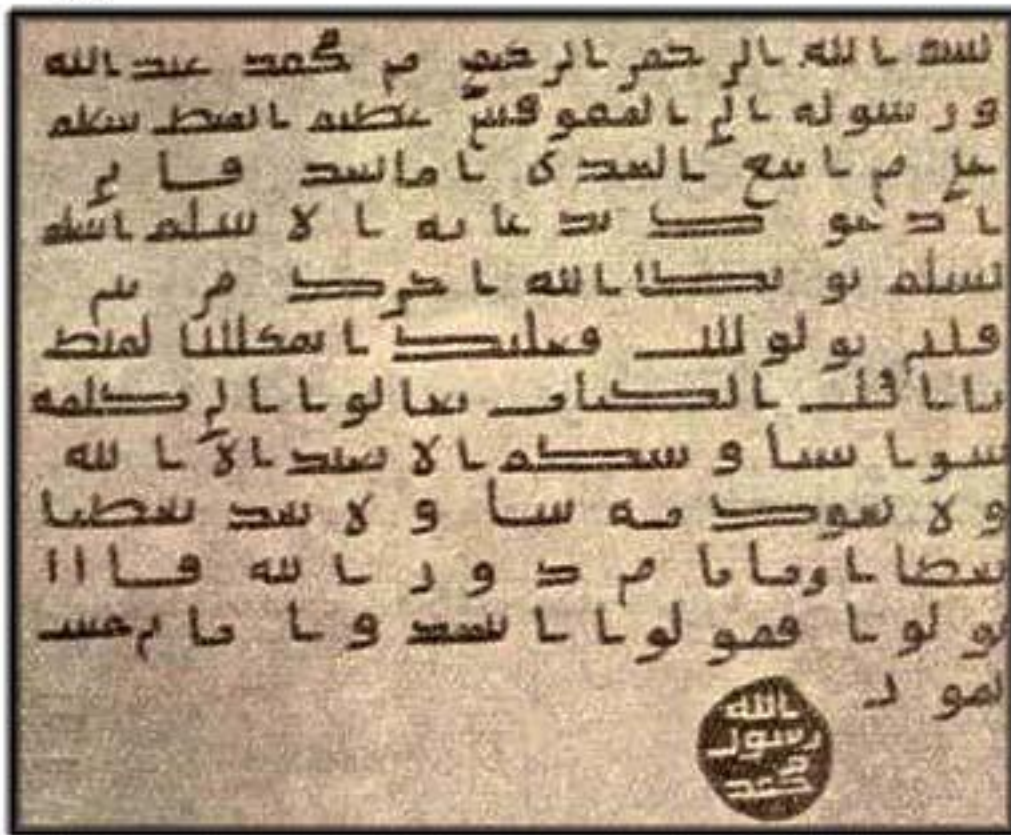 بسم الله الرحمن الرحيم من محمد عبد الله
ورسوله الى المقوقس عظيم القبط سلم
على من اتبع الهدى اما بعد فانى
ادعوك بدعاية الاسلم اسلم
تسلم يوتك الله اجرك مرتين
فان توليت فعليك القبط
يا اهل الكتاب تعالوا الى كلمة
سوا بيننا وبينكم الا نعبد الا الله
ولا نشرك به شيا ولا يتخذ بعضنا
بعضا اربابا من دون الله فان
تولوا فقولوا اشهدوا بانا مسل
مون
الله
رسول
محمد